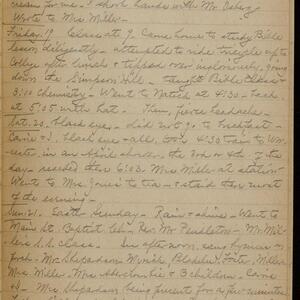 cream for me. I shook hands with Mr.
Wrote to Mrs. Miller.
Friday, 19 Class at 9. Came home to study Bible
lesson diligently - attempted to ride tricycle up to
College after lunch & tipped over ingloriously, going
down the Simpson Hill - taught Bible Class &
3:10 Chemistry. Went to Natick at 4:30. Back
at 5:05 with hat. Then, fierce headache.
Sat. 20, black eyes, did not go to breakfast -
Carrie & I, black eye & all, took 4:30 train to
in an April shower, the 3rd or 4th of the
day - reached there 6:03. Mrs. Miller at station
Went to Mrs. Jones' to tea - & staid there most
of the evening -
Sun. 21. Easter Sunday - Rain & shine - Went to
Main St. Baptist Ch. - Rev. Mr. Pendleton - Mr.
S. S. class. In afternoon, sang hymns on
porch - Mr. Shepardson, Mr.
Mrs. Miller - Mrs. Abercrombie & 3 children - Carrie
& I - Mrs. Shepardson being present for a few minutes